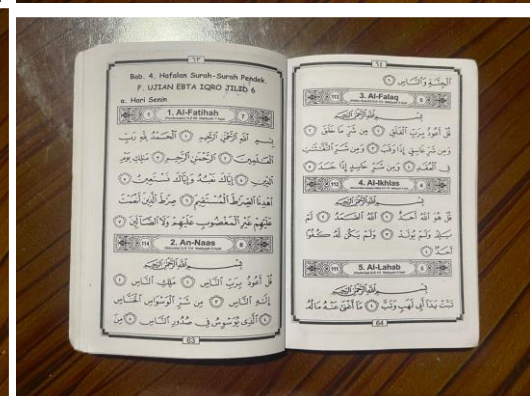 ٦٣
Bab. 4. Hafalan Surah-Surah Pendek.
P. UJIAN EBTA IQRO JILID 6
a. Hari Senin
1 1. Al-Fatihah 7
بِسْمِ اللّٰهِ الرَّحْمٰنِ الرَّحِيْمِ ١ اَلْحَمْدُ لِلّٰهِ رَبِّ
الْعٰلَمِيْنَ ٢ الرَّحْمٰنِ الرَّحِيْمِ ٣ مٰلِكِ يَوْمِ
الدِّيْنِ ٤ اِيَّاكَ نَعْبُدُ وَاِيَّاكَ نَسْتَعِيْنُ ٥
اِهْدِنَا الصِّرَاطَ الْمُسْتَقِيْمَ ٦ صِرَاطَ الَّذِيْنَ اَنْعَمْتَ
عَلَيْهِمْ غَيْرِ الْمَغْضُوْبِ عَلَيْهِمْ وَلَا الضَّآلِّيْنَ ٧
114 2. An-Naas 6
بِسْمِ اللّٰهِ الرَّحْمٰنِ الرَّحِيْمِ
قُلْ اَعُوْذُ بِرَبِّ النَّاسِ ١ مَلِكِ النَّاسِ ٢
اِلٰهِ النَّاسِ ٣ مِنْ شَرِّ الْوَسْوَاسِ الْخَنَّاسِ
٤ الَّذِيْ يُوَسْوِسُ فِيْ صُدُوْرِ النَّاسِ ٥ مِنَ
63
٦٤
الْجِنَّةِ وَالنَّاسِ ٦
113 3. Al-Falaq 5
بِسْمِ اللّٰهِ الرَّحْمٰنِ الرَّحِيْمِ
قُلْ اَعُوْذُ بِرَبِّ الْفَلَقِ ١ مِنْ شَرِّ مَا خَلَقَ ٢
وَمِنْ شَرِّ غَاسِقٍ اِذَا وَقَبَ ٣ وَمِنْ شَرِّ النَّفّٰثٰتِ
فِى الْعُقَدِ ٤ وَمِنْ شَرِّ حَاسِدٍ اِذَا حَسَدَ ٥
112 4. Al-Ikhlas 4
بِسْمِ اللّٰهِ الرَّحْمٰنِ الرَّحِيْمِ
قُلْ هُوَ اللّٰهُ اَحَدٌ ١ اَللّٰهُ الصَّمَدُ ٢ لَمْ
يَلِدْ وَلَمْ يُوْلَدْ ٣ وَلَمْ يَكُنْ لَّهٗ كُفُوًا
اَحَدٌ ٤
111 5. Al-Lahab 5
بِسْمِ اللّٰهِ الرَّحْمٰنِ الرَّحِيْمِ
تَبَّتْ يَدَآ اَبِيْ لَهَبٍ وَّتَبَّ ١ مَآ اَغْنٰى عَنْهُ مَالُهٗ
64